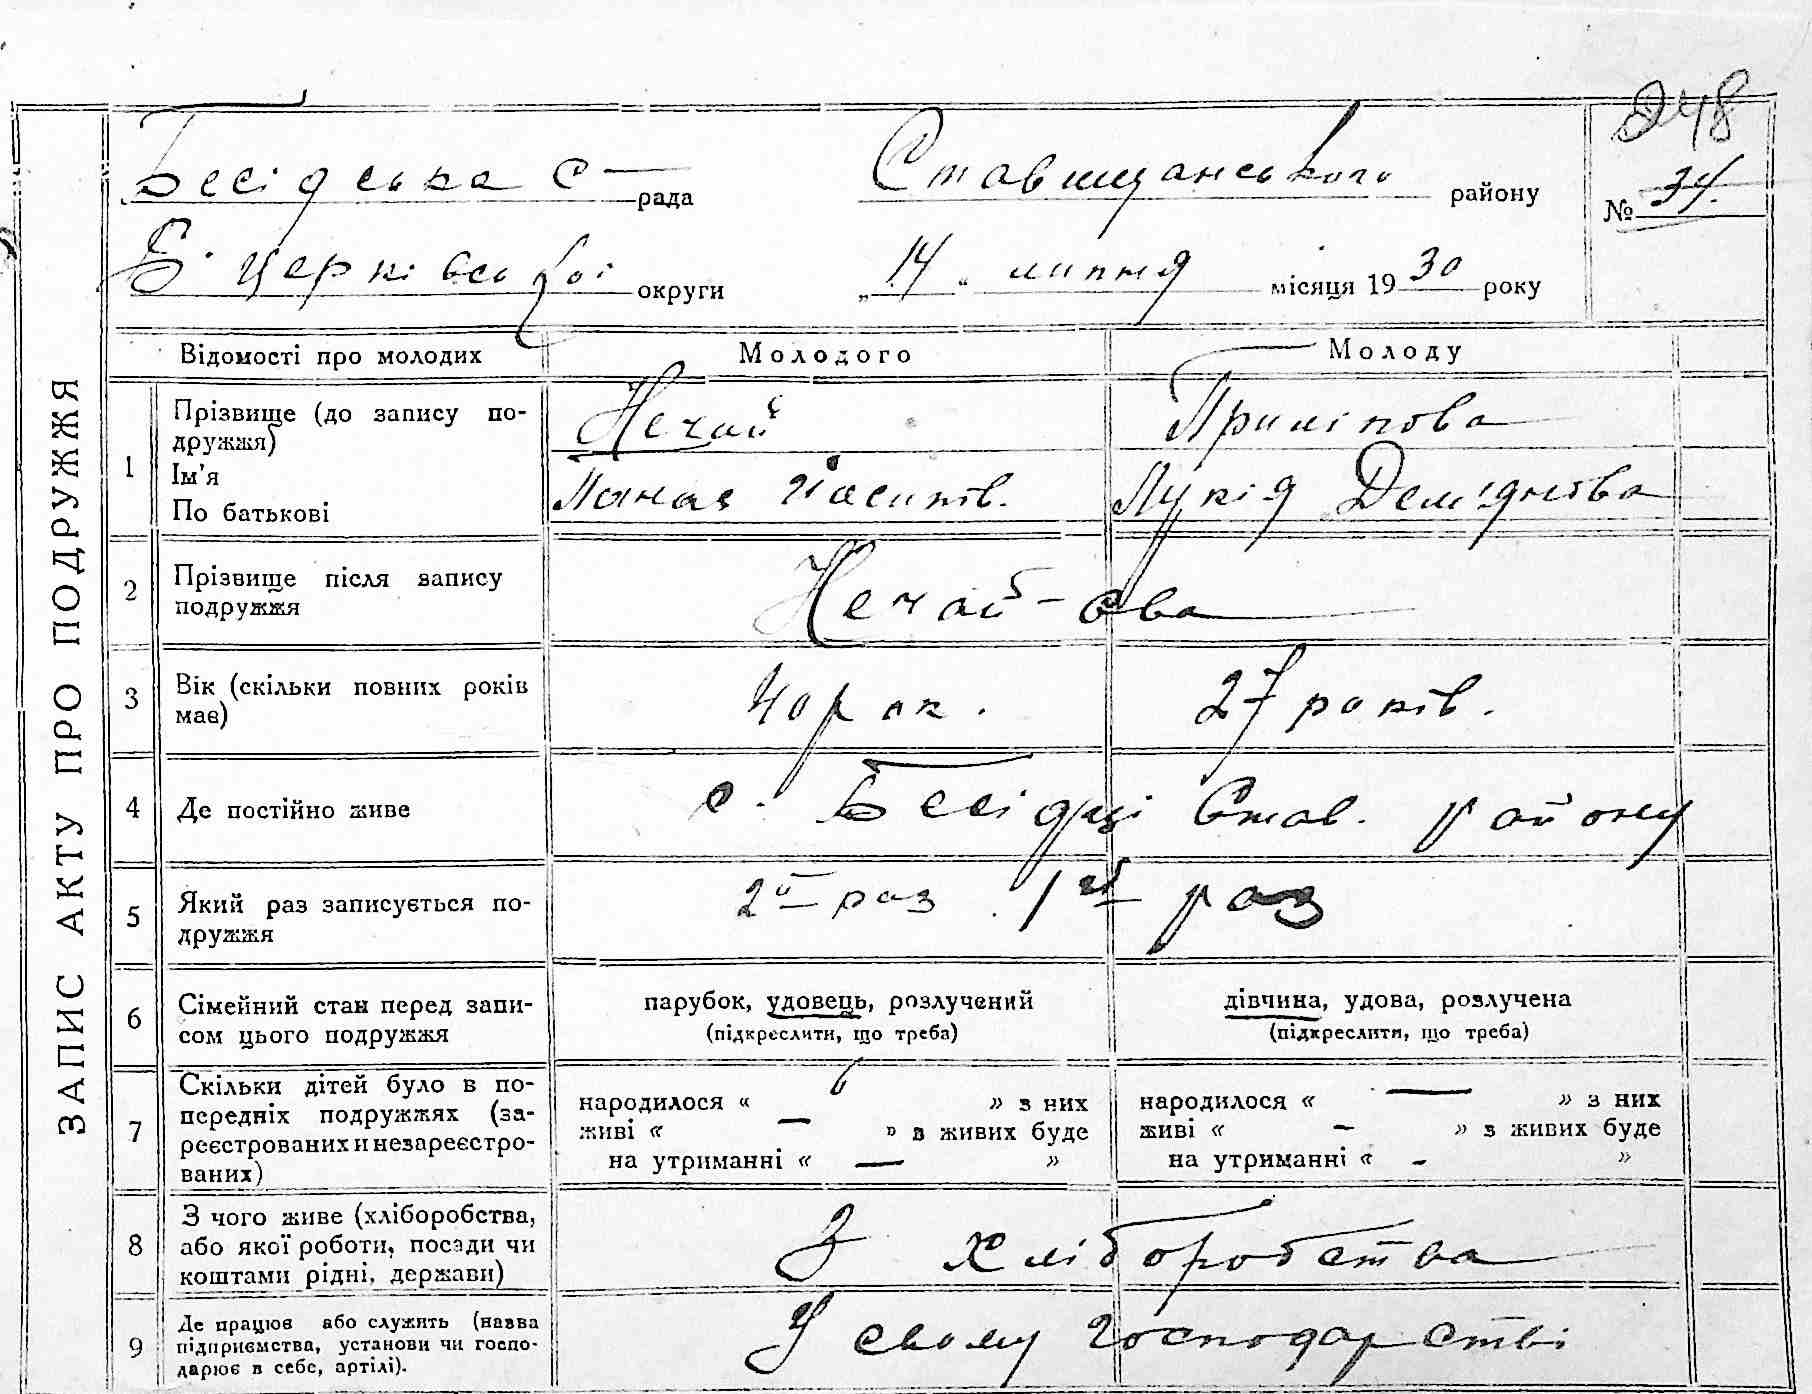 248
Бесідська с рада Ставищанського району № 34.
Б. Церківської округи „14“ липня місяця 1930 року
ЗАПИС АКТУ ПРО ПОДРУЖЖЯ
Відомості про молодих Молодого Молоду
1 Прізвище (до запису по-
дружжя) Нечай Приліпова
Ім'я
По батькові Панас Йосипів. Лукія Демʼянівна
2 Прізвище після запису
подружжя Нечай-ова
3 Вік (скільки повних років
має) 40 рок. 27 років.
4 Де постійно живе с. Бесідці Став. району
5 Який раз записується по-
дружжя 2й раз 1й раз
6 Сімейний стан перед запи-
сом цього подружжя
парубок, удовець, розлучений
(підкреслити, що треба)
дівчина, удова, розлучена
(підкреслити, що треба)
7 Скільки дітей було в по-
передніх подружжях (за-
реєстрованих и незареєстро-
ваних)
народилося « 6 » з них
живі « — » в живих буде
на утриманні « — »
народилося « — » з них
живі « — » з живих буде
на утриманні « - »
8 З чого живе (хліборобства,
або якої роботи, посади чи
коштами рідні, держави) З хліборобства
9 Де працює або служить (назва
підприємства, установи чи госпо-
дарює в себе, артілі). У свому господарстві